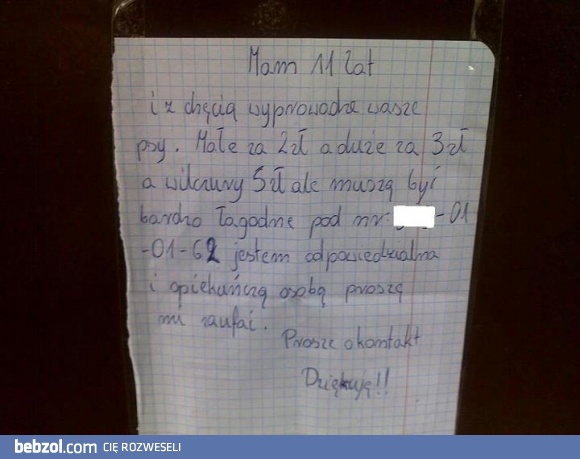 Mam 11 lat
i z chęcią wyprowadzę wasze
psy. Małe za 2zł a duże za 3zł
a wilczury 5zł ale muszą być
bardzo łagodne pod nr -01
-01-62 jestem odpowiedzialna
i opiekuńczą osobą proszę
mi zaufać.
Prosze okontakt
Dziękuję!!
bebzol.com CIĘ ROZWESELI